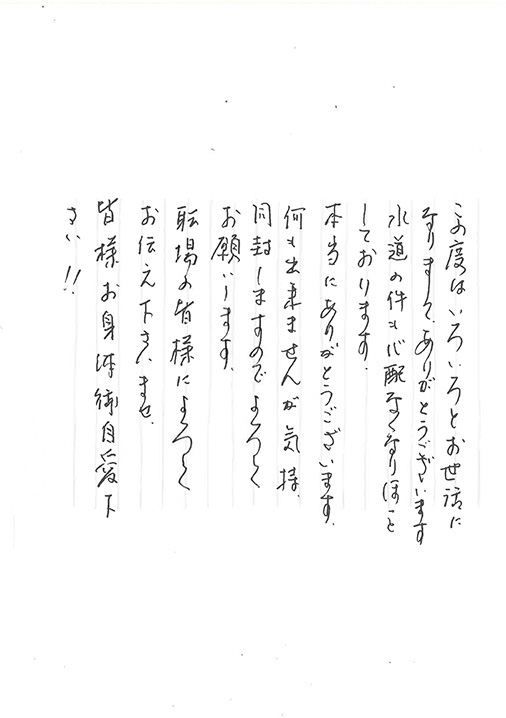 この度はいろいろとお世話に
なりまして、ありがとうございます
水道の件も心配なくなりほっと
しております。
本当にありがとうございます。
何も出来ませんが気持、
同封しますのでよろしく
お願いします。
転場の皆様によろしく
お伝え下さいませ。
皆様お身体御自愛下
さい!!